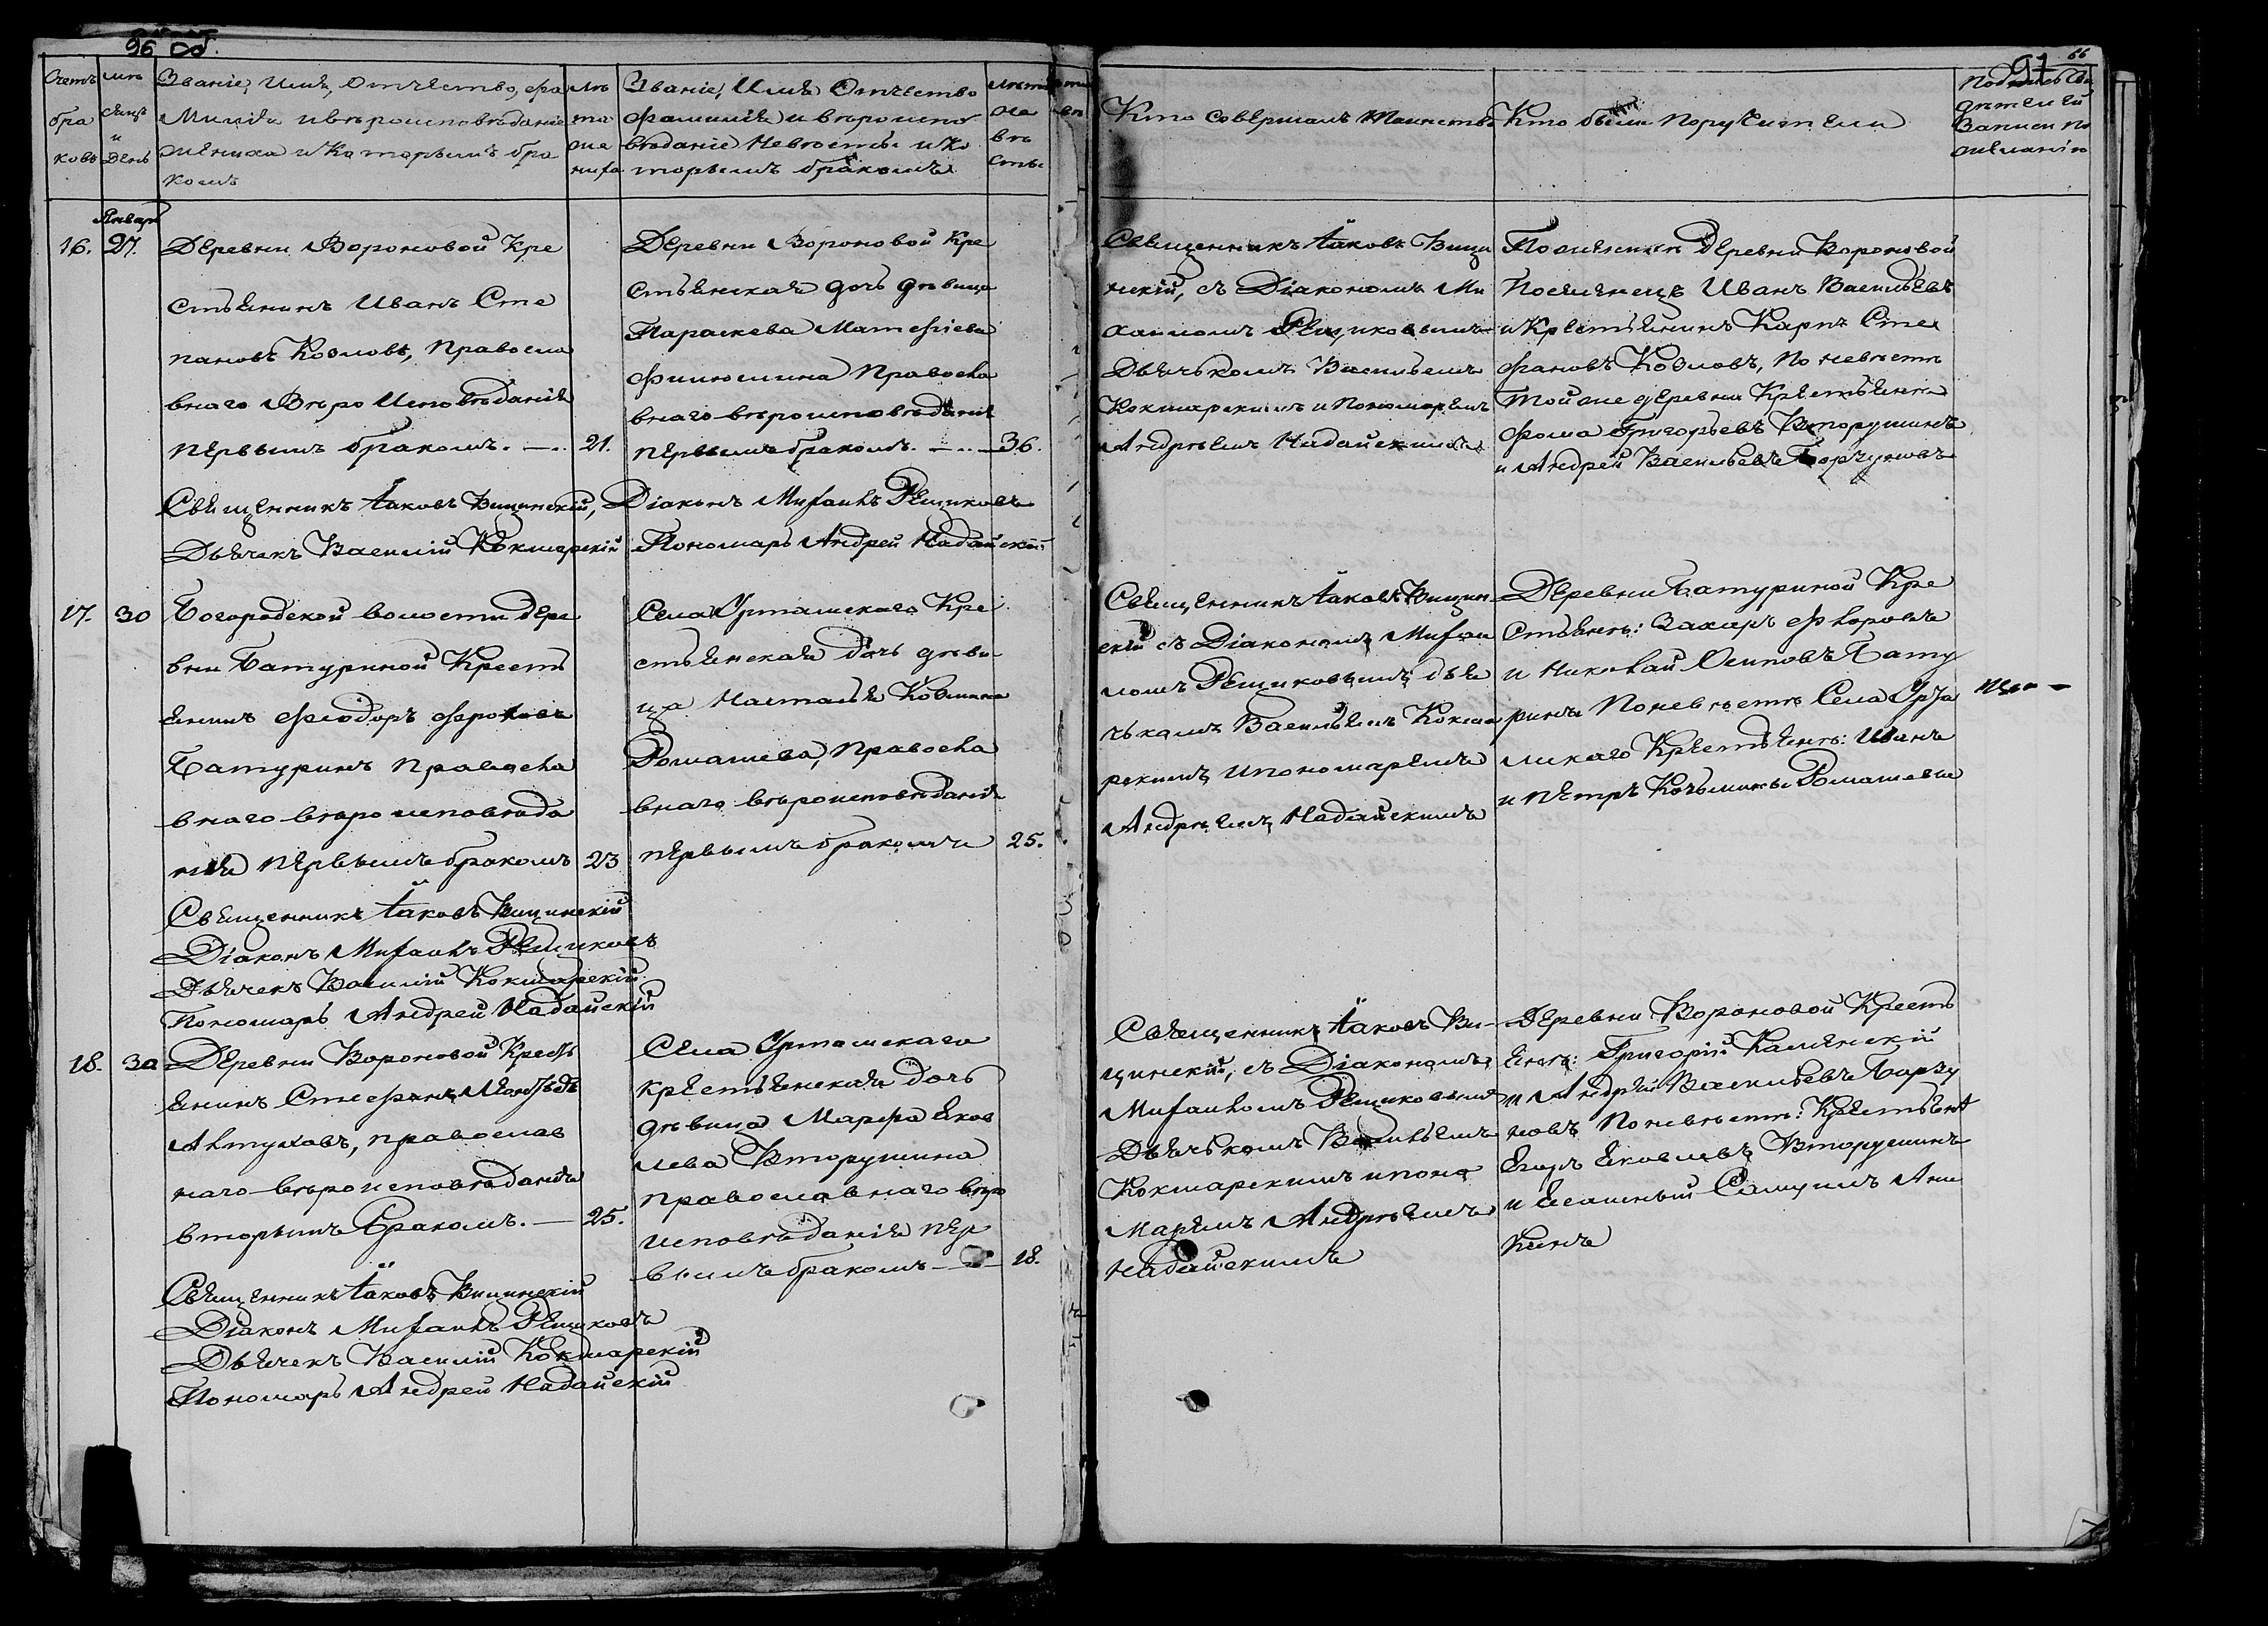 96 об.
Счетъ бра ковъ
мѣ сяцъ и день
Званіе, Имя, Отчество, фа
милія и вѣроисповѣданіе
жениха и Которымъ бра
комъ
лѣ та же ниха
Званіе, Имя Отчество
фамилія и вѣроиспо
вѣданіе Невѣсты и Ко
торымъ бракомъ
лѣта не вѣ сты
Январ
16.
27.
Деревни Вороновой Кре
стьянинъ Иванъ Сте
пановъ Козловъ, Правосла
внаго Вѣро Исповѣданія
первымъ бракомъ. — 21.
Деревни Вороновой Кре
стьянская дочь дѣвица
Параскева Матфіева
Филюшина Правосла
внаго вѣроисповѣданія
первымъ бракомъ. — 36.
Священникъ Іаковъ Вицинскій, Діаконъ Михаилъ Рещиковъ
Дьячекъ Василій Кокшарскій Пономарь Андрей Надайскій
17.
30
Богородской волости дере
вни Батуриной Кресть
янинъ Феодоръ Фроловъ
Батуринъ Правосла
внаго вѣроисповѣда
нія первымъ бракомъ 23
Села Урташскаго Кре
стьянская дочь дѣви
ца Наталья Козмина
Ромашева, Правосла
внаго вѣроисповѣданія
первымъ бракомъ 25.
Священникъ Іаковъ Вицинскій
Діаконъ Михаилъ Рещиковъ
Дьячекъ Василій Кокшарскій
Пономарь Андрей Надайскій
18.
30
Деревни Вороновой Кресть
янинъ Стефанъ
Алтуховъ, православ
наго вѣроисповѣданія
вторымъ бракомъ. — 25.
Села Урташскаго
крестьянская дочь
дѣвица Марфа Яков
лева Вторушина
православнаго вѣро
исповѣданія пер
вымъ бракомъ — 18.
Священникъ Іаковъ Вицинскій
Діаконъ Михаилъ Рещиковъ
Дьячекъ Василій Кокшарскій
Пономарь Андрей Надайскій
97
66
Кто совершалъ Таинство
Кто были Поручители
Подпись Сви
дѣтелей
Записи по
желанію
Священникъ Іаковъ Вици
нскій, съ Діакономъ Ми
хаиломъ Рещиковымъ
Дьячькомъ Васильемъ
Кокшарскимъ и Пономаремъ
Андрѣемъ Надайскимъ
По женихѣ деревни Вороновой
Поселенецъ Иванъ Васильевъ
и Крестьянинъ Карпъ Сте
фановъ Козловъ, По невѣстѣ
Той же деревни Крестьяне
Фома Григорьевъ Вторушинъ
и Андрей Васильевъ Борзуновъ
Священникъ Іаковъ Вицин
скій съ Діакономъ Михаи
ломъ Рещиковымъ дья
чькомъ Васильемъ Кокша
рскимъ и пономаремъ
Андрѣемъ Надайскимъ
Деревни Батуриной Кре
стьянѣ: Захаръ Фроловъ
и Николай Осиповъ Бату
ринъ По невѣстѣ Села Урта
шскаго Крестьянѣ: Иванъ
и Петръ Козьмины Ромашевы
Священникъ Іаковъ Ви-
цинскій, съ Діакономъ
Михаиломъ Рещиковымъ
Дьячькомъ Васильемъ
Кокшарскимъ и поно
маремъ Андрѣемъ
Надайскимъ
Деревни Вороновой Кресть
янѣ: Григорій Каменскій
и Андрей Васильевъ Борзу
новъ По невѣстѣ: Крестьянѣ
Егоръ Яковлевъ Вторушинъ
и Самуилъ Ани
кинъ